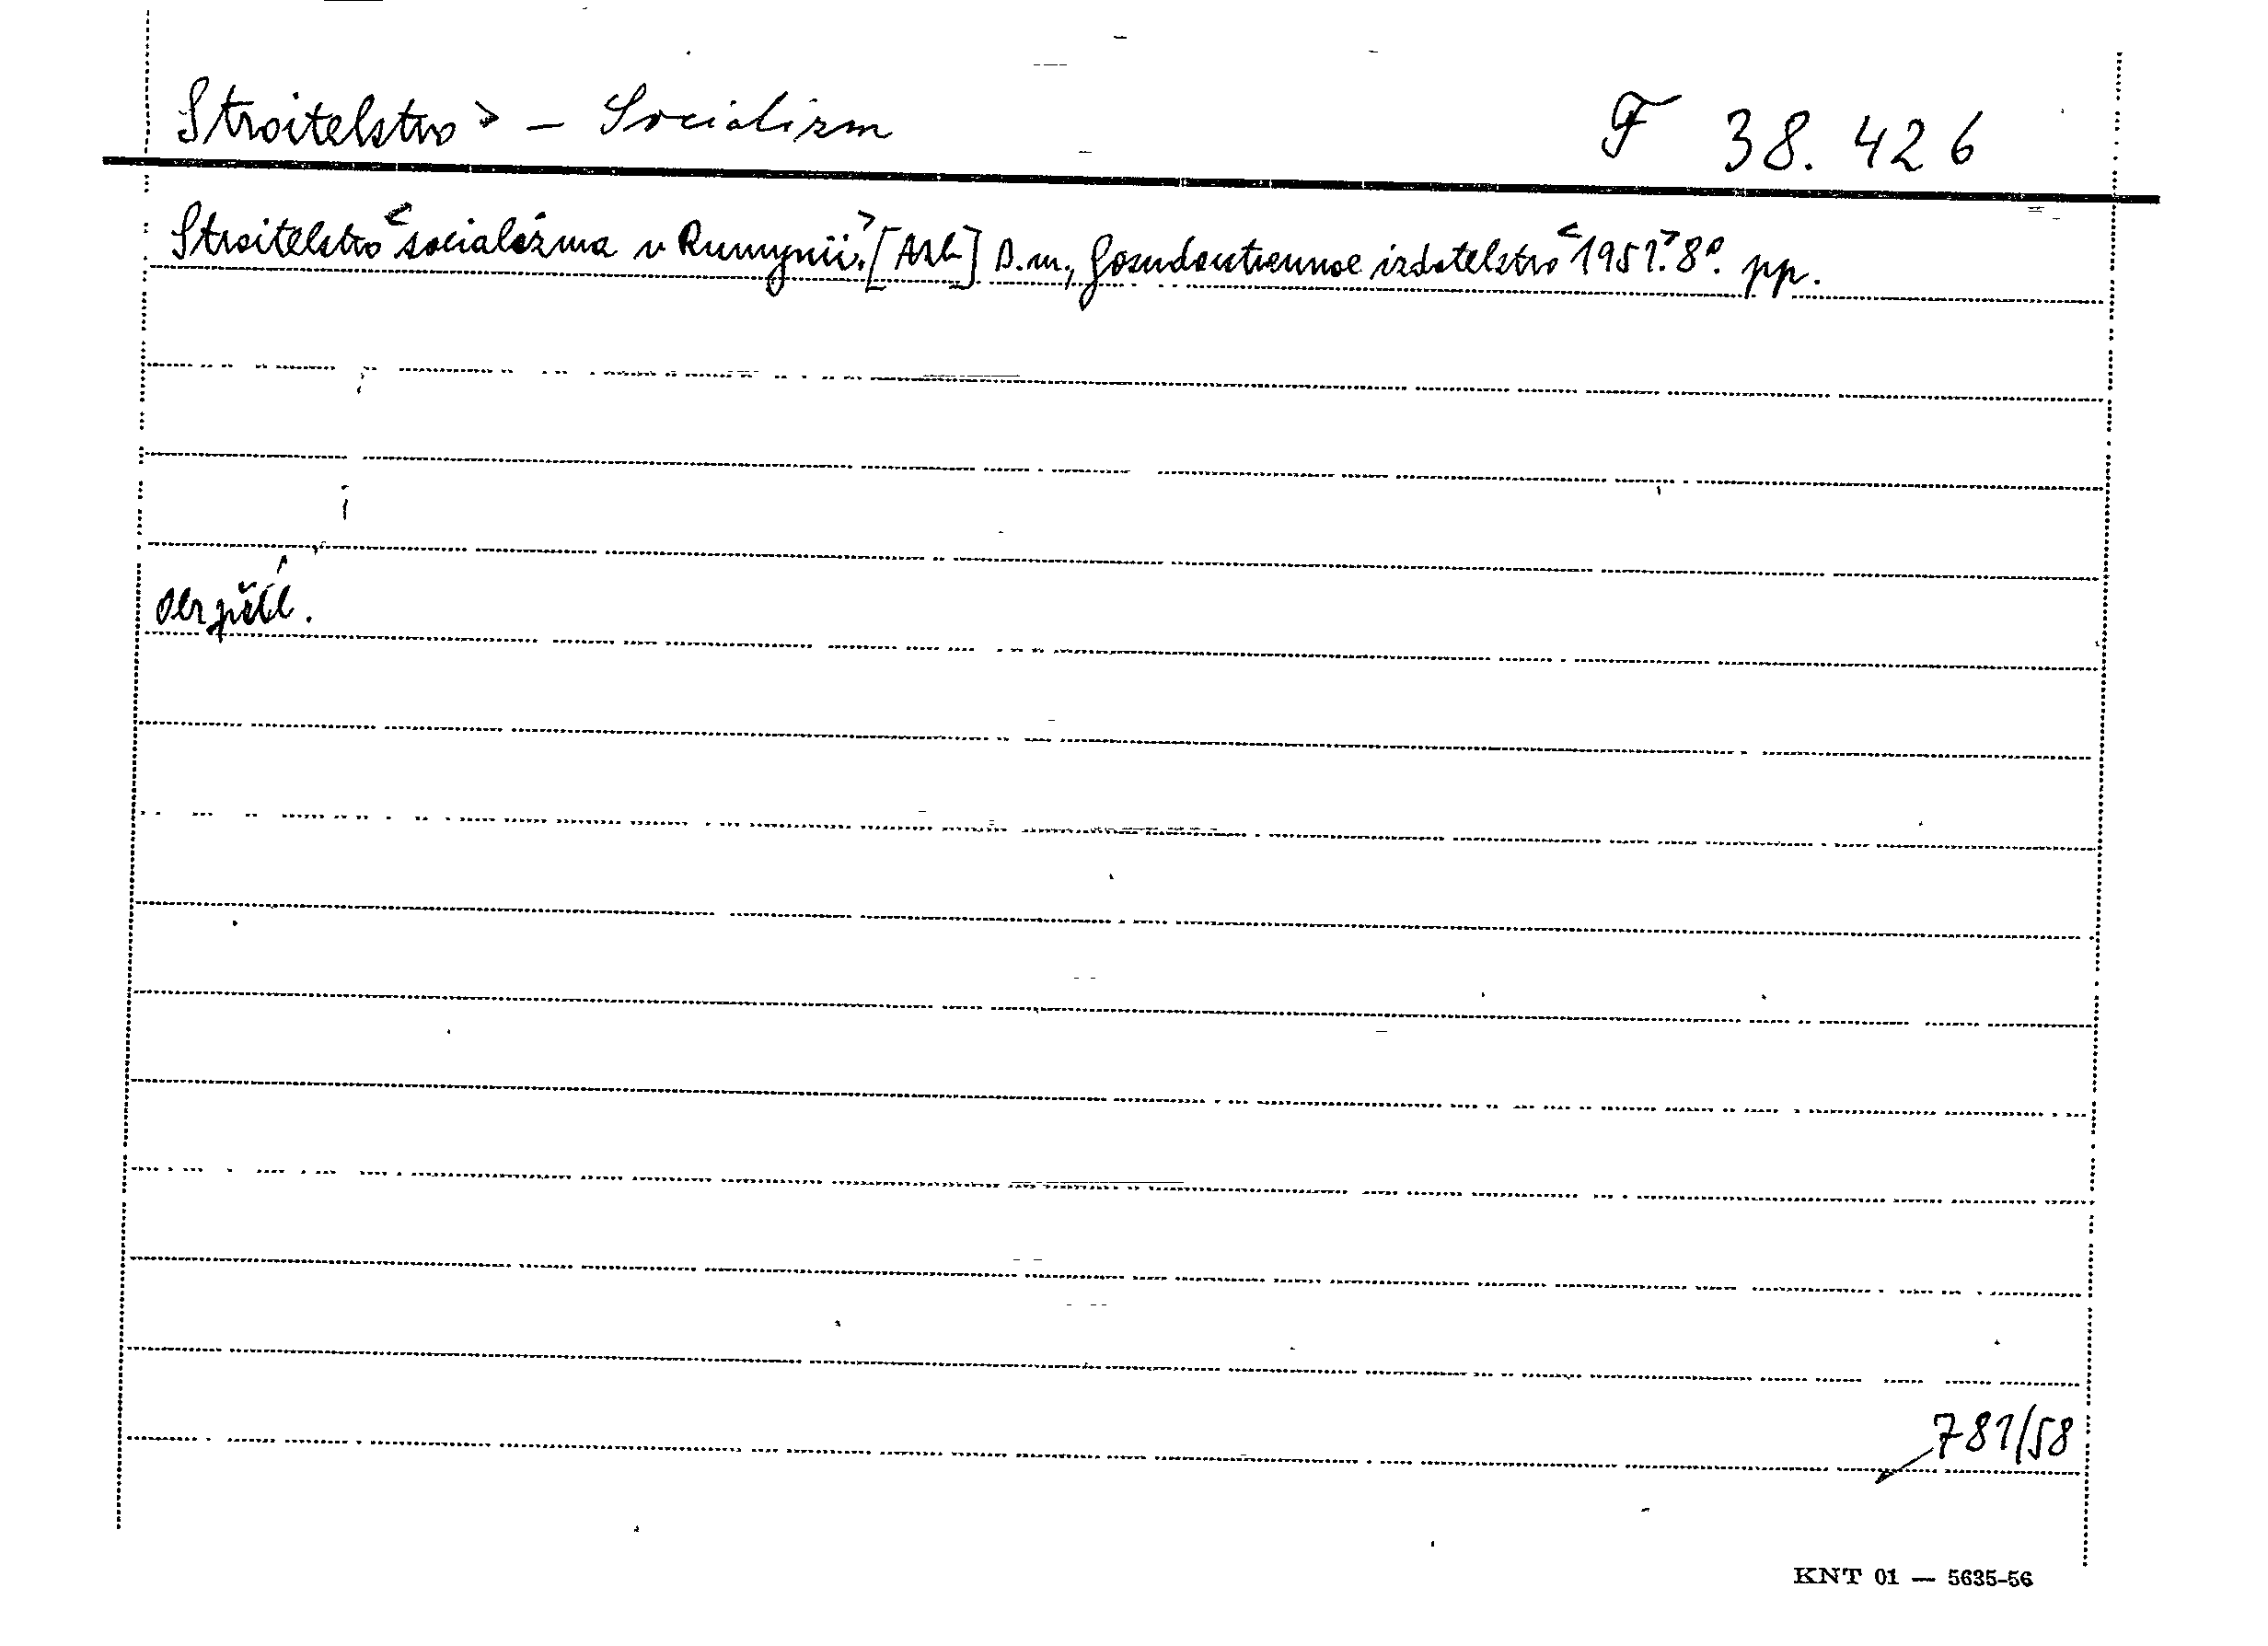 Stroitelstvo > - Socializm F 38.426
Stroitelstvo < socializma v Rumynii. > [Azb] B.m., Gosudarstvennoe izdatelstvo < 1951. > 8°. pp.
Obr. příl.
781/58
KNT 01 — 5635-56